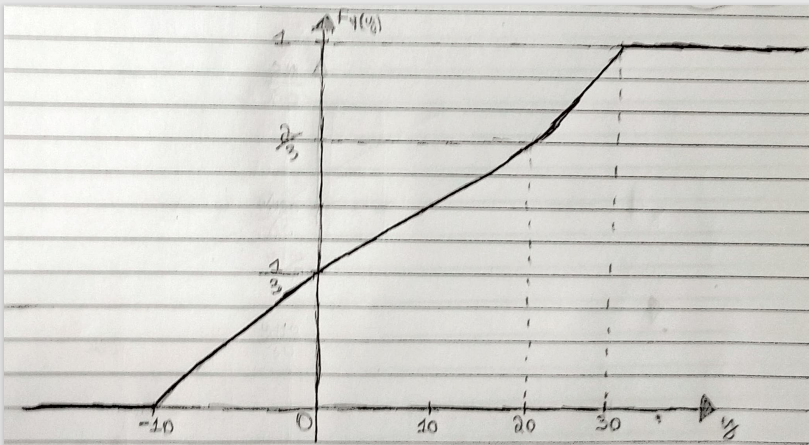 1
F_Y(y)
2/3
1/3
-10 0 10 20 30 y